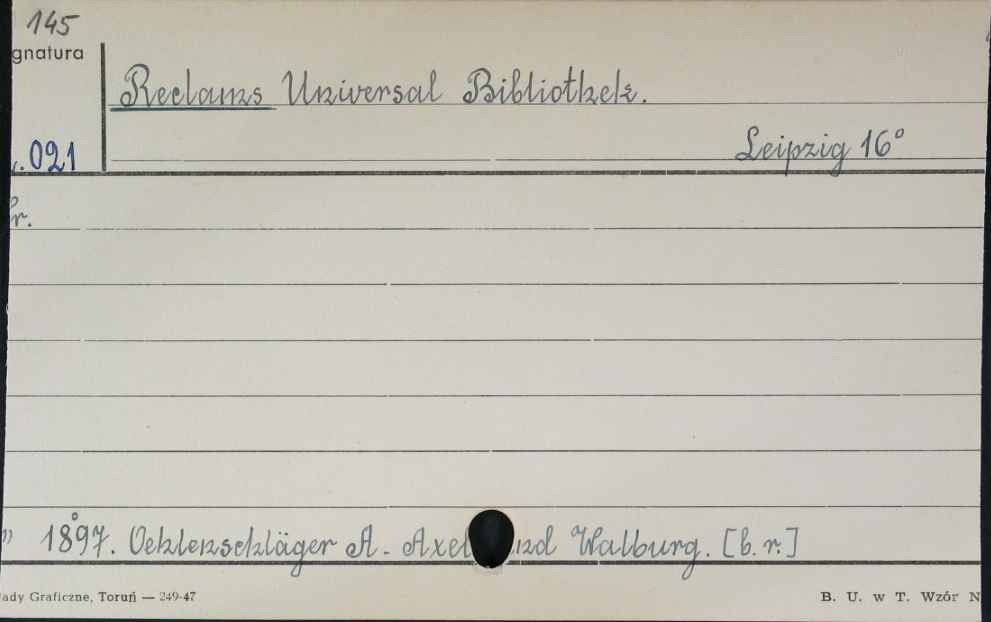 145
gnatura
Reclams Universal Bibliothek.
.021
Leipzig 16°
r.
" 1897. Oehlenschläger A. Axel und Walburg. [b. r.]
ady Graficzne, Toruń — 249-47
B. U. w T. Wzór N